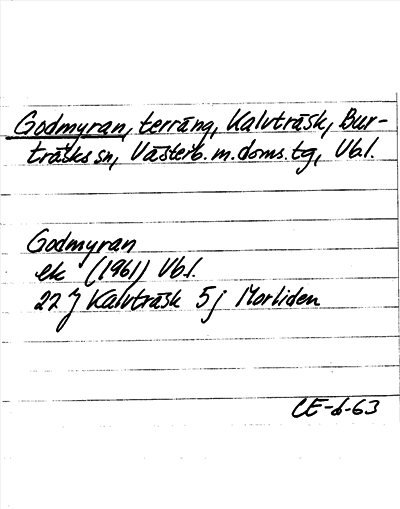 Godmyran, terräng, Kalvträsk, Bur-
träsks sn, Västerb. m. doms. tg, Vb.l.
Godmyran
ek (1961) Vb.l.
22 J Kalvträsk 5 j Morliden
CE-6-63